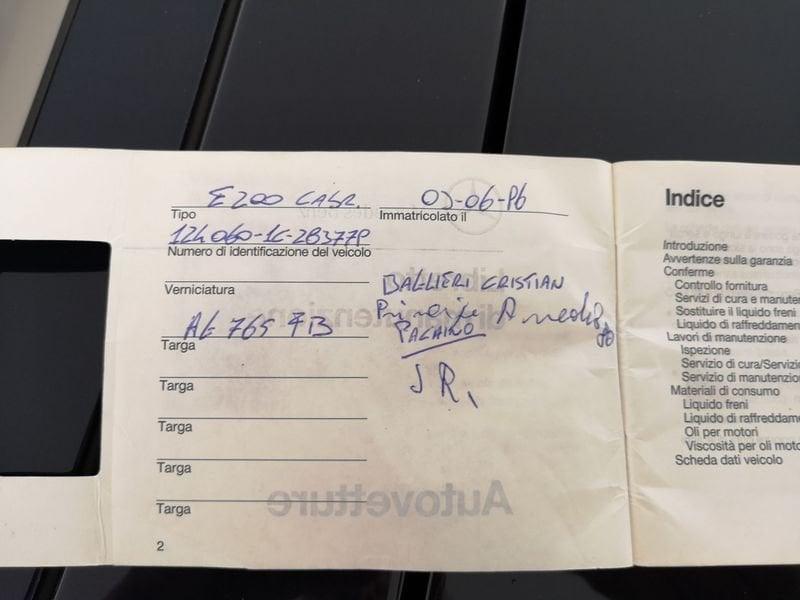 E200 CABR.
Tipo
03-06-96
Immatricolato il
Numero di identificazione del veicolo
Verniciatura
BALLIERI CRISTIAN
PACHINO
Targa
Targa
Targa
Targa
Targa
2
Indice
Introduzione
Avvertenze sulla garanzia
Conferme
Controllo fornitura
Servizi di cura e manuten
Sostituire il liquido freni
Liquido di raffreddamen
Lavori di manutenzione
Ispezione
Servizio di cura/Servizio
Servizio di manutenzio
Materiali di consumo
Liquido freni
Liquido di raffreddame
Oli per motori
Viscosità per oli moto
Scheda dati veicolo
Autovetture